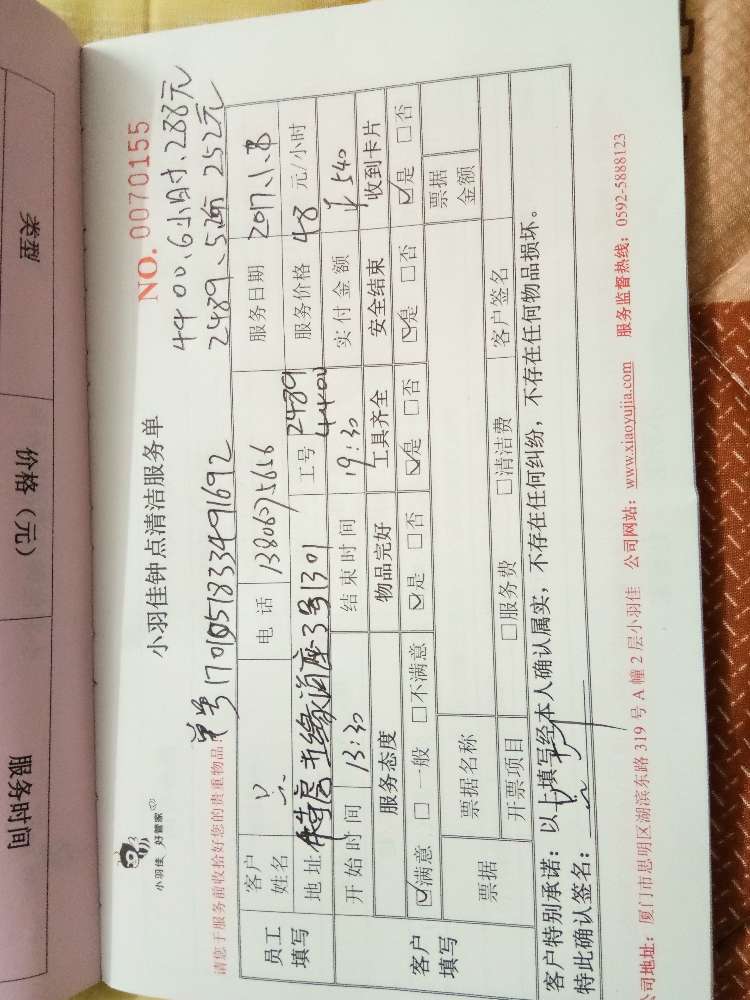 类型
价格（元）
服务时间
小羽佳 好管家
小羽佳钟点清洁服务单
NO. 0070155
4400.6小时.288元
2489、5.25 252元
请您于服务前收拾好您的贵重物品!
单号
员工填写
客户姓名
电话 13806975616
服务日期 2017.1.8
地址 五缘 3号1301
工号 2489 4400
服务价格 48 元/小时
开始时间 13:30
结束时间 19:30
实付金额 540
客户填写
服务态度
物品完好
工具齐全
安全结束
收到卡片
☑满意 □一般 □不满意
☑是 □否
☑是 □否
☑是 □否
☑是 □否
票据
票据名称
票据金额
开票项目
□服务费 □清洁费
客户签名
客户特别承诺：以上填写经本人确认属实，不存在任何纠纷，不存在任何物品损坏。
特此确认签名：
公司地址：厦门市思明区湖滨东路319号A幢2层小羽佳 公司网站：www.xiaoyujia.com 服务监督热线：0592-5888123